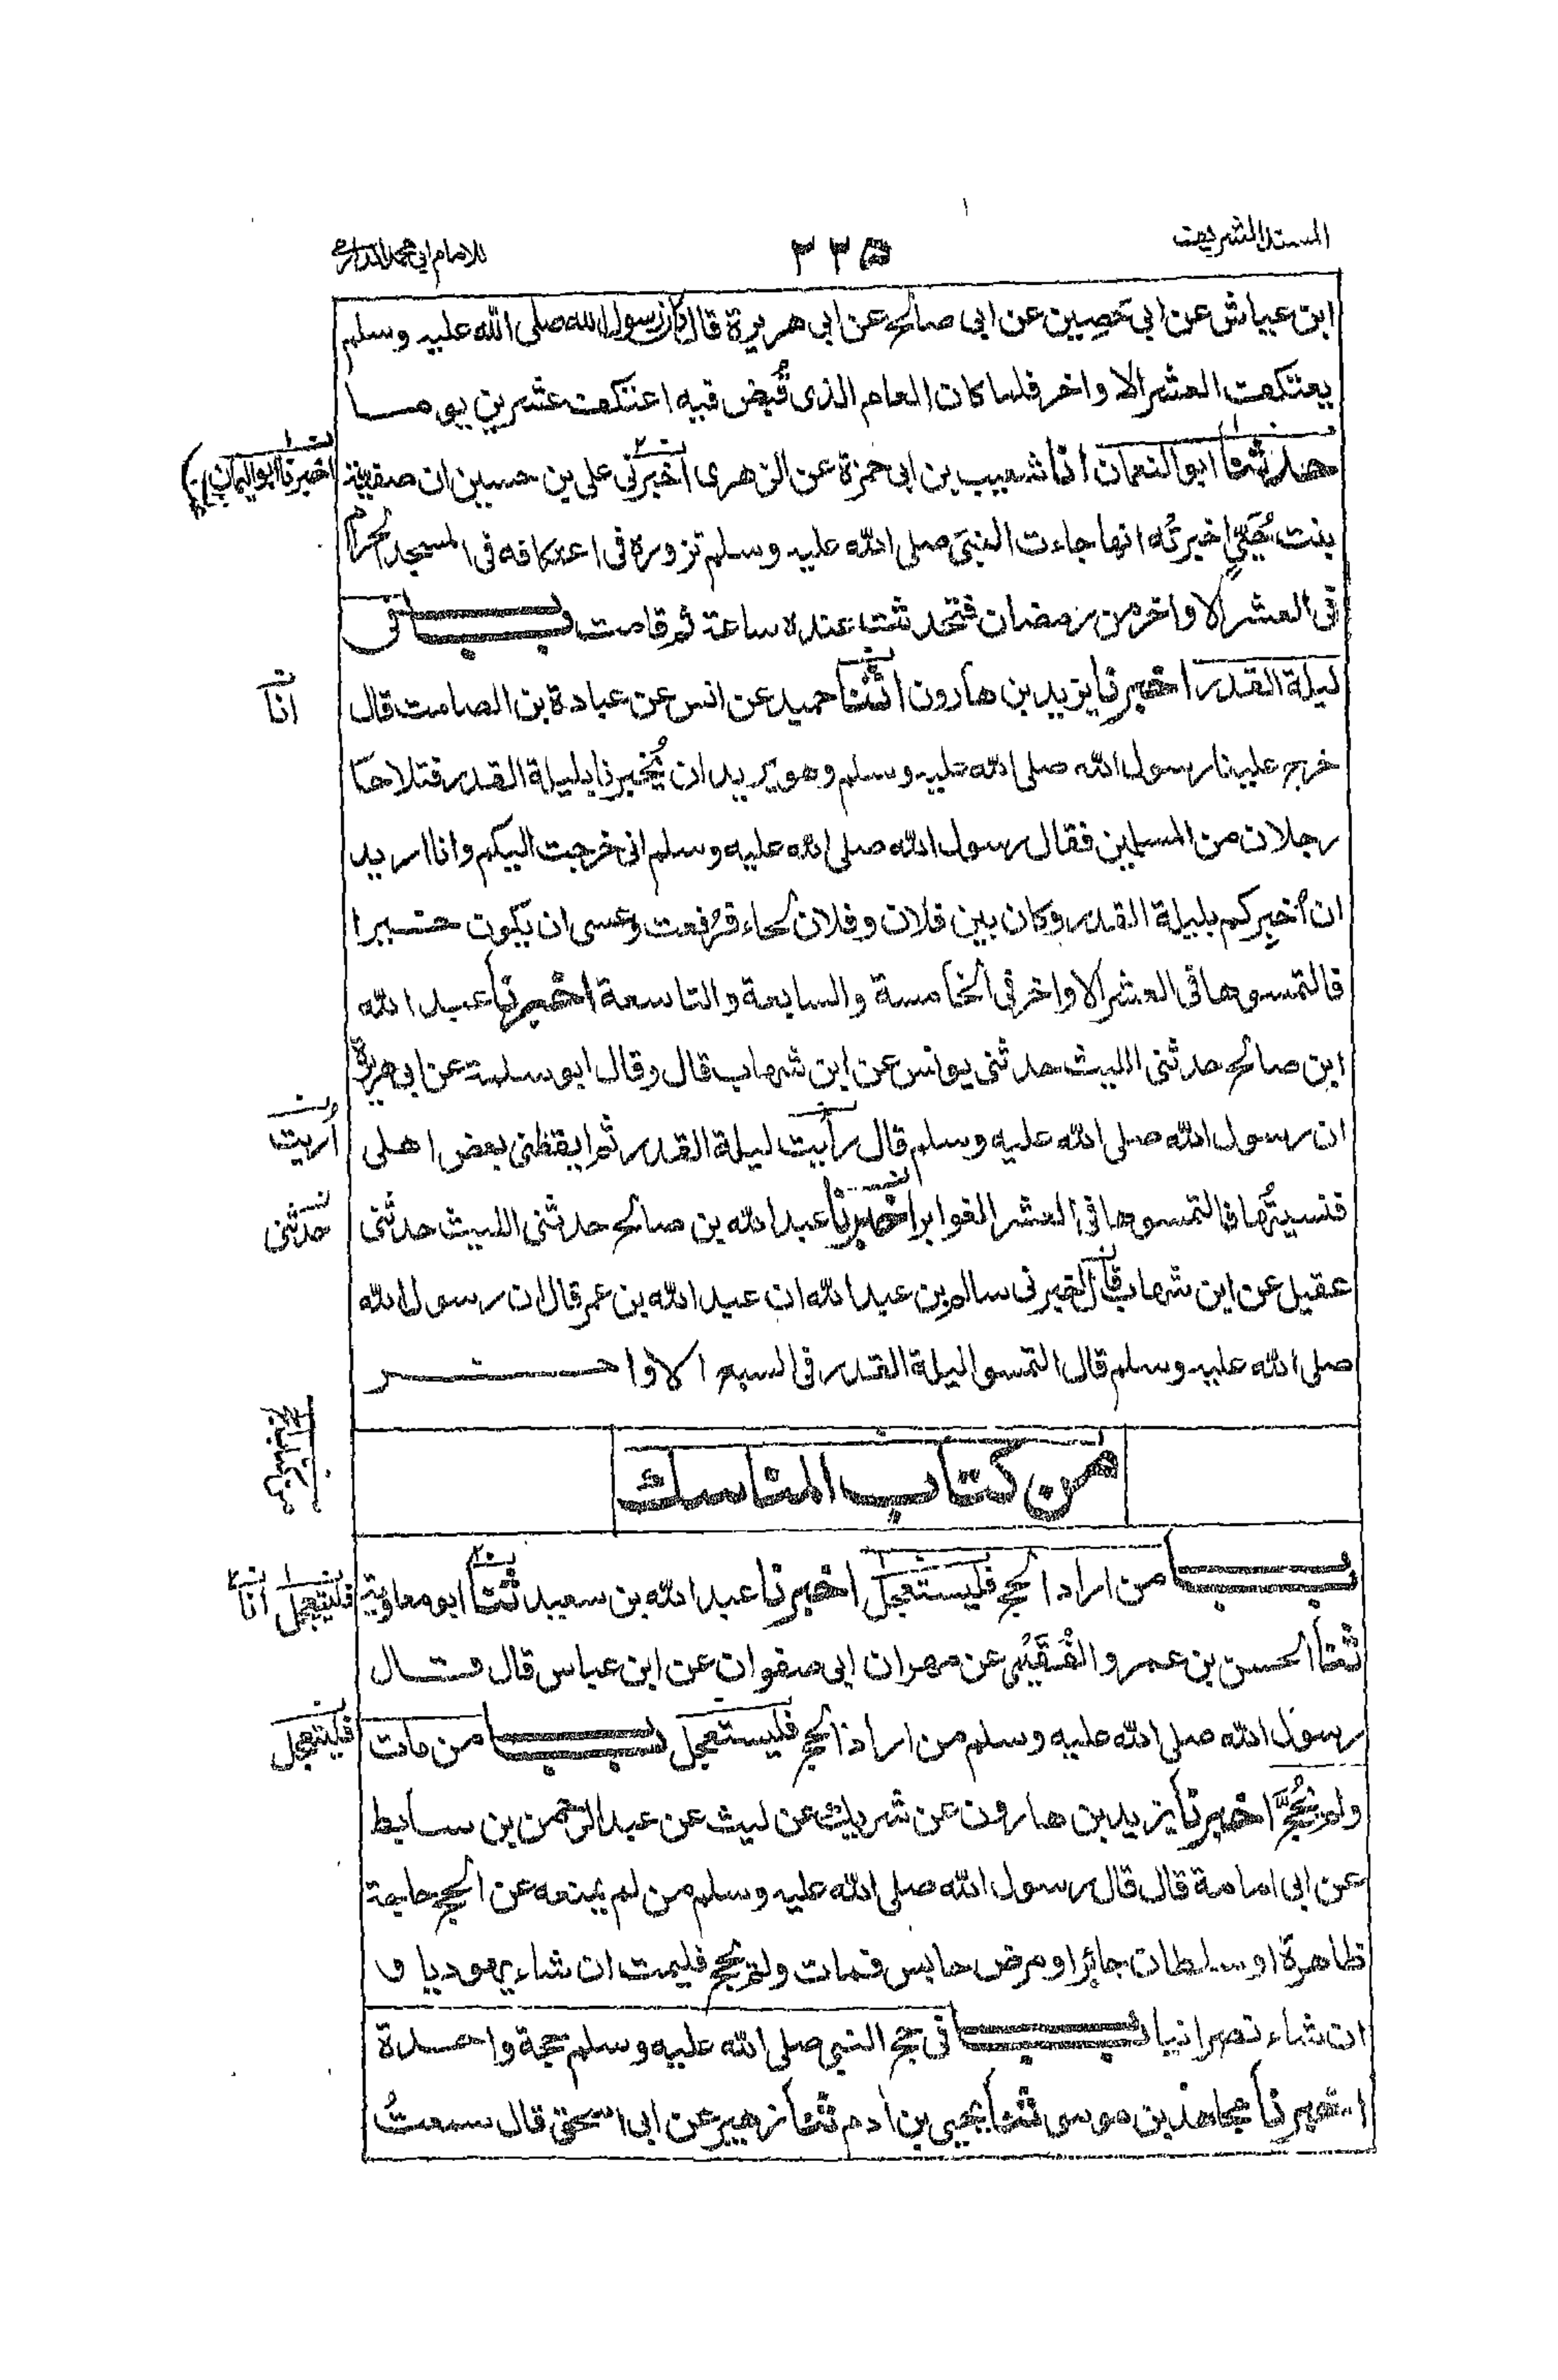 المسند الشريف
٢٢٥
للامام ابي محمد الدارمي
ابن عياش عن ابي حَصِين عن ابى صالح عن ابى هريرة قال كان رسول الله صلى الله عليه وسلم
يعتكف العشر الاواخر فلما كان العام الذى قُبض فيه اعتكف عشرين يوما
حدثنا ابو النعمان انا شعيب بن ابى حمزة عن الزهرى اخبرنى على بن حسين ان صفية
اخبرنا ابو اليمان
بنت حُيَيٍّ اخبرتُه انها جاءت النبى صلى الله عليه وسلم تزوره فى اعتكافه فى المسجد الحرام
فى العشر الاواخر من رمضان فتحدثت عنده ساعة ثم قامت باب فى
ليلة القدر اخبرنا يزيد بن هارون انثنا حميد عن انس عن عبادة بن الصامت قال
انا
خرج علينا رسول الله صلى الله عليه وسلم وهو يريد ان يُخبرنا بليلة القدر فتلاحا
رجلان من المسلمين فقال رسول الله صلى الله عليه وسلم انى خرجت اليكم وانا اريد
ان اُخبركم بليلة القدر وكان بين فلان وفلان لحاء فرُفعت وعسى ان يكون خيرا
فالتمسوها فى العشر الاواخر فى الخامسة والسابعة والتاسعة اخبرنا عبد الله
ابن صالح حدثنى الليث حدثنى يونس عن ابن شهاب قال وقال ابو سلمة عن ابى هريرة
ان رسول الله صلى الله عليه وسلم قال رأيت ليلة القدر ثم ايقظنى بعض اهلى
اُريت
فنسيتُها فالتمسوها فى العشر الغوابر اخبرنا عبد الله بن صالح حدثنى الليث حدثنى
حدثنى
عقيل عن ابن شهاب قال اخبرنى سالم بن عبد الله ان عبد الله بن عمر قال ان رسول الله
صلى الله عليه وسلم قال التمسوا ليلة القدر فى السبع الاواخر
من كتاب المناسك
باب من اراد الحج فليستعجل اخبرنا عبد الله بن سعيد ثنا ابو معاوية
فليتعجل انا
ثنا الحسن بن عمرو الفُقَيْمى عن مهران ابى صفوان عن ابن عباس قال قال
رسول الله صلى الله عليه وسلم من اراد الحج فليستعجل باب من مات
فليتعجل
ولم يَحُجَّ اخبرنا يزيد بن هارون عن شريك عن ليث عن عبد الرحمن بن سابط
عن ابى امامة قال قال رسول الله صلى الله عليه وسلم من لم يمنعه عن الحج حاجة
ظاهرة او سلطان جائر او مرض حابس فمات ولم يحج فليمت ان شاء يهوديا و
ان شاء نصرانيا باب فى حج النبى صلى الله عليه وسلم حجة واحدة
اخبرنا مجاهد بن موسى ثنا يحيى بن ادم ثنا زهير عن ابى اسحق قال سمعتُ